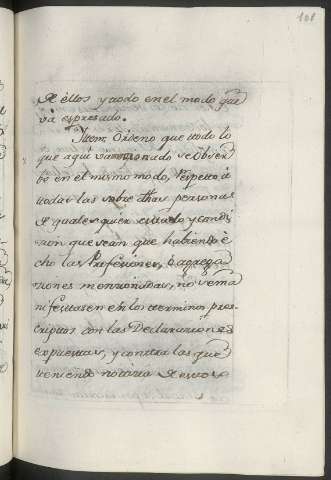 101
de èllos y todo en el modo que
và espresado.
Item: Ordeno que todo lo
que aqui sanzionado se obser
be en el mismo modo, respecto à
todas las sobre dhas personas
de qualesquier estado y condi
zion que sean que habiendo è
cho las Profesiones, ò agrega
ziones menzionadas, no se ma
nifestasen en los terminos pres
criptos con las Declaraziones
expuestas, y contra los que
teniendo notizia de estos